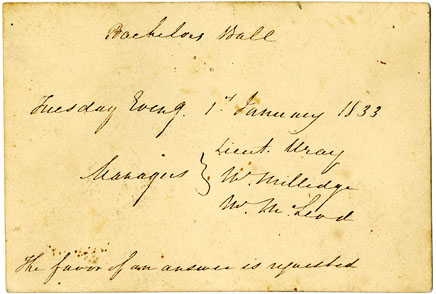 Bachelors Ball
Tuesday Eveng. 1st January 1833
Managers
Lieut. Wray
W. Millidge
W. McLeod
The favor of an answer is requested